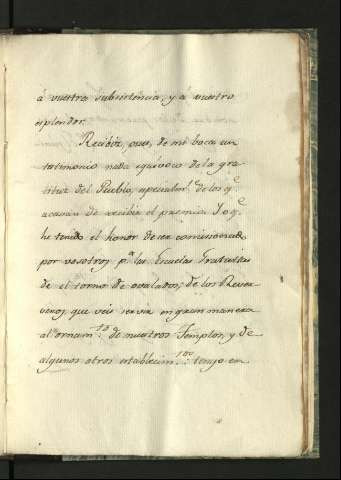 á vuestra subsistencia, y á vuestro
esplendor.
Recibid, pues, de mi boca un
testimonio nada equívoco de la gra-
titud del Pueblo, especialm.te de los q.e
acavan de recibir el premio. Yo q.e
he tenido el honor de ser comisionado
por vosotros, p.a las Escuelas Gratuitas
de el torno de ovalados, de los
que veis servir en gran manera
al ornam.to de nuestros Templos, y de
algunos otros establecim.tos: tengo en